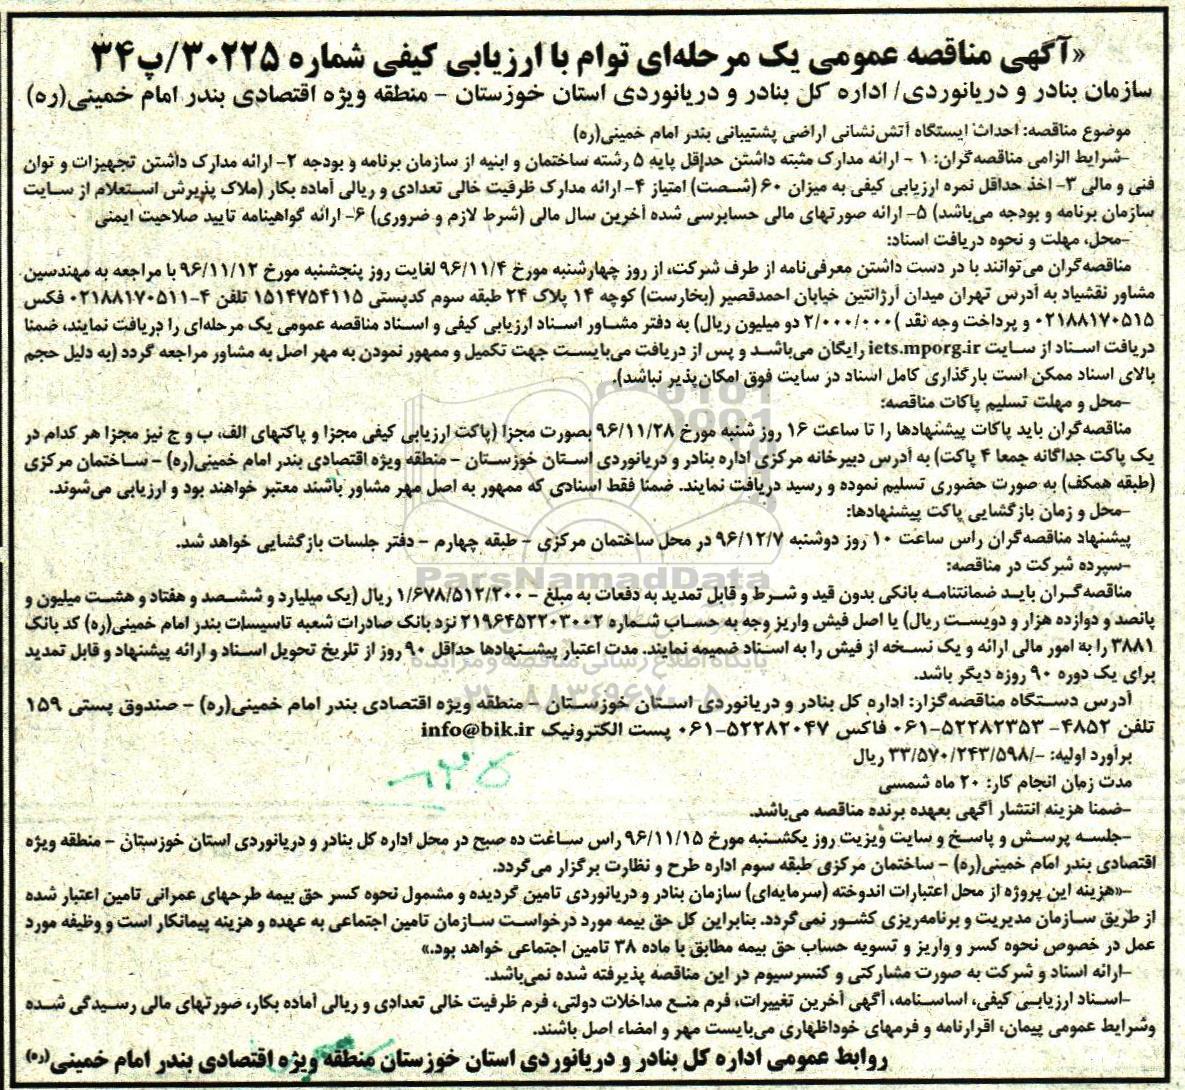 «آگهی مناقصه عمومی یک مرحله‌ای توام با ارزیابی کیفی شماره ۳۰۲۲۵/پ۳۴
سازمان بنادر و دریانوردی/ اداره کل بنادر و دریانوردی استان خوزستان – منطقه ویژه اقتصادی بندر امام خمینی(ره)
موضوع مناقصه: احداث ایستگاه آتش‌نشانی اراضی پشتیبانی بندر امام خمینی(ره)
–شرایط الزامی مناقصه‌گران: ۱ – ارائه مدارک مثبته داشتن حداقل پایه ۵ رشته ساختمان و ابنیه از سازمان برنامه و بودجه ۲– ارائه مدارک داشتن تجهیزات و توان
فنی و مالی ۳– اخذ حداقل نمره ارزیابی کیفی به میزان ۶۰ (شصت) امتیاز ۴– ارائه مدارک ظرفیت خالی تعدادی و ریالی آماده بکار (ملاک پذیرش استعلام از سایت
سازمان برنامه و بودجه می‌باشد) ۵– ارائه صورتهای مالی حسابرسی شده آخرین سال مالی (شرط لازم و ضروری) ۶– ارائه گواهینامه تایید صلاحیت ایمنی
–محل، مهلت و نحوه دریافت اسناد:
مناقصه‌گران می‌توانند با در دست داشتن معرفی‌نامه از طرف شرکت، از روز چهارشنبه مورخ ۹۶/۱۱/۴ لغایت روز پنجشنبه مورخ ۹۶/۱۱/۱۲ با مراجعه به مهندسین
مشاور نقشیاد به آدرس تهران میدان آرژانتین خیابان احمدقصیر (بخارست) کوچه ۱۴ پلاک ۲۴ طبقه سوم کدپستی ۱۵۱۴۷۵۴۱۱۵ تلفن ۴–۰۲۱۸۸۱۷۰۵۱۱ فکس
۰۲۱۸۸۱۷۰۵۱۵ و پرداخت وجه نقد )۲/۰۰۰/۰۰۰ دو میلیون ریال) به دفتر مشاور اسناد ارزیابی کیفی و اسناد مناقصه عمومی یک مرحله‌ای را دریافت نمایند، ضمنا
دریافت اسناد از سایت iets.mporg.ir رایگان می‌باشد و پس از دریافت می‌بایست جهت تکمیل و ممهور نمودن به مهر اصل به مشاور مراجعه گردد (به دلیل حجم
بالای اسناد ممکن است بارگذاری کامل اسناد در سایت فوق امکان‌پذیر نباشد).
–محل و مهلت تسلیم پاکات مناقصه:
مناقصه‌گران باید پاکات پیشنهادها را تا ساعت ۱۶ روز شنبه مورخ ۹۶/۱۱/۲۸ بصورت مجزا (پاکت ارزیابی کیفی مجزا و پاکتهای الف، ب و ج نیز مجزا هر کدام در
یک پاکت جداگانه جمعا ۴ پاکت) به آدرس دبیرخانه مرکزی اداره بنادر و دریانوردی استان خوزستان – منطقه ویژه اقتصادی بندر امام خمینی(ره) – ساختمان مرکزی
(طبقه همکف) به صورت حضوری تسلیم نموده و رسید دریافت نمایند. ضمنا فقط اسنادی که ممهور به اصل مهر مشاور باشند معتبر خواهند بود و ارزیابی می‌شوند.
–محل و زمان بازگشایی پاکت پیشنهادها:
پیشنهاد مناقصه‌گران راس ساعت ۱۰ روز دوشنبه ۹۶/۱۲/۷ در محل ساختمان مرکزی – طبقه چهارم – دفتر جلسات بازگشایی خواهد شد.
ParsNamadData
–سپرده شرکت در مناقصه:
مناقصه‌گران باید ضمانتنامه بانکی بدون قید و شرط و قابل تمدید به دفعات به مبلغ – ۱/۶۷۸/۵۱۲/۲۰۰ ریال (یک میلیارد و ششصد و هفتاد و هشت میلیون و
پانصد و دوازده هزار و دویست ریال) یا اصل فیش واریز وجه به حساب شماره ۲۱۹۶۴۵۲۲۰۳۰۰۲ نزد بانک صادرات شعبه تاسیسات بندر امام خمینی(ره) کد بانک
۳۸۸۱ را به امور مالی ارائه و یک نسخه از فیش را به اسناد ضمیمه نمایند. مدت اعتبار پیشنهادها حداقل ۹۰ روز از تاریخ تحویل اسناد و ارائه پیشنهاد و قابل تمدید
پایگاه اطلاع رسانی مناقصه و مزایده
برای یک دوره ۹۰ روزه دیگر باشد.
آدرس دستگاه مناقصه‌گزار: اداره کل بنادر و دریانوردی استان خوزستان – منطقه ویژه اقتصادی بندر امام خمینی(ره) – صندوق پستی ۱۵۹
تلفن ۴۸۵۲– ۵۲۲۸۲۳۵۳–۰۶۱ فاکس ۵۲۲۸۲۰۴۷–۰۶۱ پست الکترونیک info@bik.ir
برآورد اولیه: –/۳۳/۵۷۰/۲۴۳/۵۹۸ ریال
مدت زمان انجام کار: ۲۰ ماه شمسی
–ضمنا هزینه انتشار آگهی بعهده برنده مناقصه می‌باشد.
–جلسه پرسش و پاسخ و سایت ویزیت روز یکشنبه مورخ ۹۶/۱۱/۱۵ راس ساعت ده صبح در محل اداره کل بنادر و دریانوردی استان خوزستان – منطقه ویژه
اقتصادی بندر امام خمینی(ره) – ساختمان مرکزی طبقه سوم اداره طرح و نظارت برگزار می‌گردد.
–«هزینه این پروژه از محل اعتبارات اندوخته (سرمایه‌ای) سازمان بنادر و دریانوردی تامین گردیده و مشمول نحوه کسر حق بیمه طرحهای عمرانی تامین اعتبار شده
از طریق سازمان مدیریت و برنامه‌ریزی کشور نمی‌گردد. بنابراین کل حق بیمه مورد درخواست سازمان تامین اجتماعی به عهده و هزینه پیمانکار است و وظیفه مورد
عمل در خصوص نحوه کسر و واریز و تسویه حساب حق بیمه مطابق با ماده ۳۸ تامین اجتماعی خواهد بود.»
–ارائه اسناد و شرکت به صورت مشارکتی و کنسرسیوم در این مناقصه پذیرفته شده نمی‌باشد.
–اسناد ارزیابی کیفی، اساسنامه، آگهی آخرین تغییرات، فرم منع مداخلات دولتی، فرم ظرفیت خالی تعدادی و ریالی آماده بکار، صورتهای مالی رسیدگی شده
وشرایط عمومی پیمان، اقرارنامه و فرمهای خوداظهاری می‌بایست مهر و امضاء اصل باشند.
روابط عمومی اداره کل بنادر و دریانوردی استان خوزستان منطقه ویژه اقتصادی بندر امام خمینی(ره)